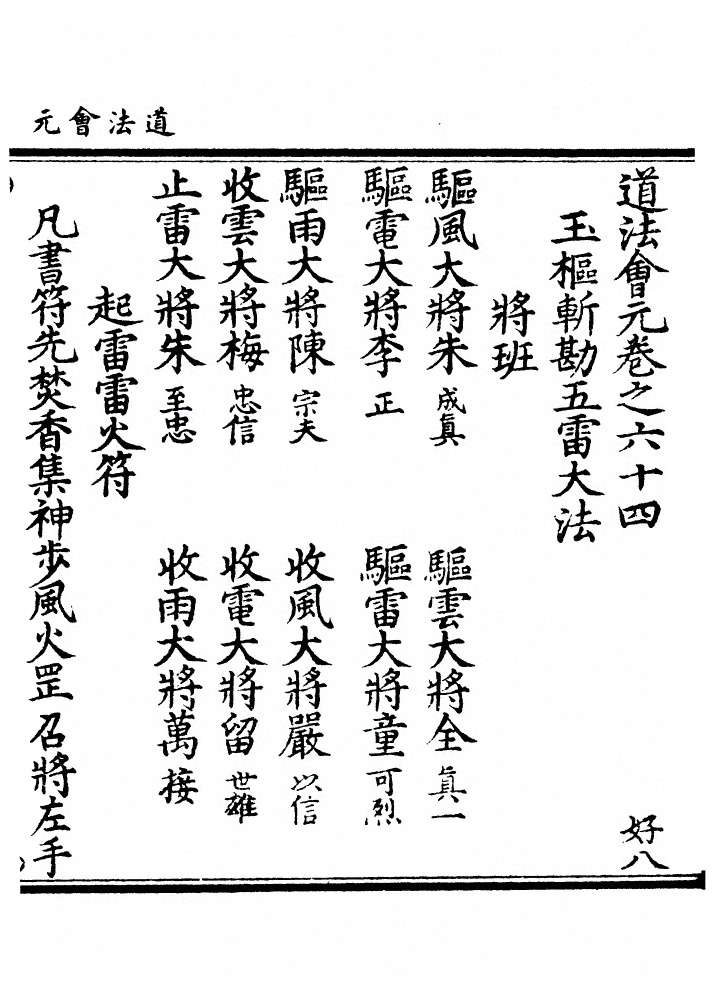 元會法道
道法會元卷之六十四 好八
玉樞斬勘五雷大法
將班
驅風大將朱成真 驅雲大將全真一
驅電大將李正 驅雷大將童可烈
驅雨大將陳宗夫 收風大將嚴以信
收雲大將梅忠信 收電大將留世雄
止雷大將朱至忠 收雨大將萬接
起雷雷火符
凡書符先焚香集神步風火罡召將左手